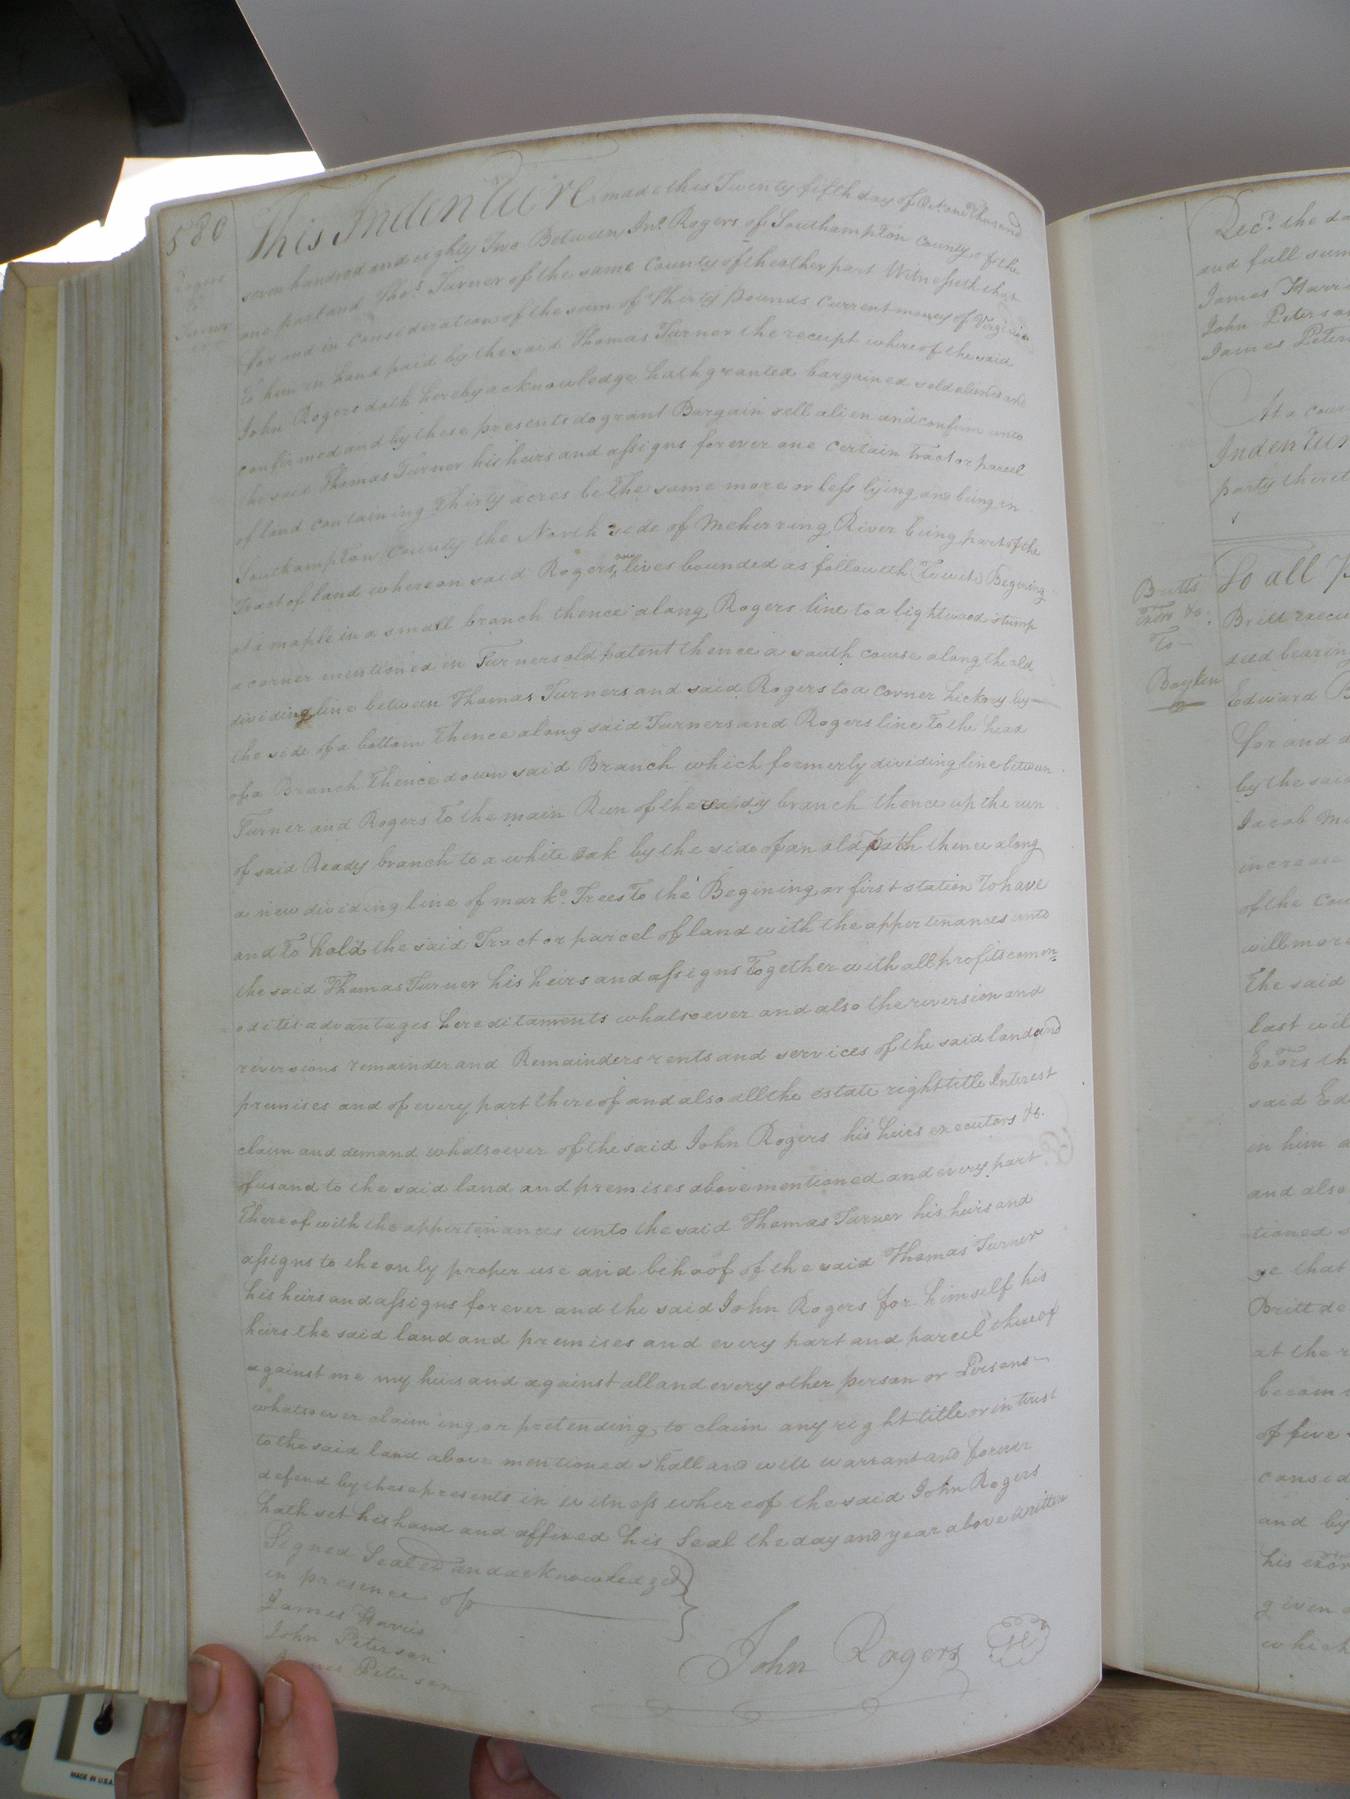 580
Rogers
to
Turner
This Indenture made this Twenty fifth day of Oct. one Thousand
seven hundred and eighty Two Between Jno. Rogers of Southampton County of the
one part and Thos. Turner of the same County of the other part Witnesseth that
for and in Consideration of the sum of Thirty Pounds Current money of Virginia
to him in hand paid by the said Thomas Turner the receipt whereof the said
John Rogers doth hereby acknowledge hath granted bargained sold aliened and
confirmed and by these presents do grant Bargain sell alien and confirm unto
the said Thomas Turner his heirs and assigns forever one certain Tract or parcel
of land containing Thirty acres be the same more or less lying and being in
Southampton County the North side of Meherring River being part of the
Tract of land whereon said Rogers now lives bounded as followeth (To wit) Begining
at a maple in a small branch thence along Rogers line to a lightwood stump
a corner mentioned in Turners old patent thence a south course along the old
dividing line between Thomas Turners and said Rogers to a corner hickory by
the side of a bottom thence along said Turners and Rogers line to the head
of a Branch thence down said Branch which formerly dividing line between
Turner and Rogers To the main Run of the Ready branch thence up the run
of said Ready branch to a white oak by the side of an old path thence along
a new dividing line of mark'd Trees To the Begining or first station To have
and To hold the said Tract or parcel of land with the appertenances unto
the said Thomas Turner his heirs and assigns Together with all profits comm
odities advantages hereditaments whatsoever and also the reversion and
reversions remainder and Remainders rents and services of the said land and
premises and of every part thereof and also all the estate right title Interest
claim and demand whatsoever of the said John Rogers his heirs executors &c.
of us and to the said land and premises above mentioned and every part
thereof with the appertenances unto the said Thomas Turner his heirs and
assigns to the only proper use and behoof of the said Thomas Turner
his heirs and assigns forever and the said John Rogers for himself his
heirs the said land and premises and every part and parcel thereof
against me my heirs and against all and every other person or Persons
whatsoever claiming or pretending to claim any right title or intrust
to the said land above mentioned shall and will warrant and forever
defend by these presents in witness whereof the said John Rogers
hath set his hand and affixed his Seal the day and year above written
Signed Sealed and acknowledged
in presence of
James Harris
John Peterson
James Peterson
John Rogers
Rec'd the da
and full sum
James Harri
John Peterso
James Peter
At a cour
Indentur
party theret
Britts
Exors &c.
To
Boykin
To all P
Britt execu
deed bearing
Edward B
for and a
by the said
Jacob M
increase
of the Cou
will more
the said
last wil
Exors th
said Ed
in him a
and also
tioned
ge that
Britt de
at the r
becom
of five
consid
and by
his exor
given
which
MADE IN U.S.A.